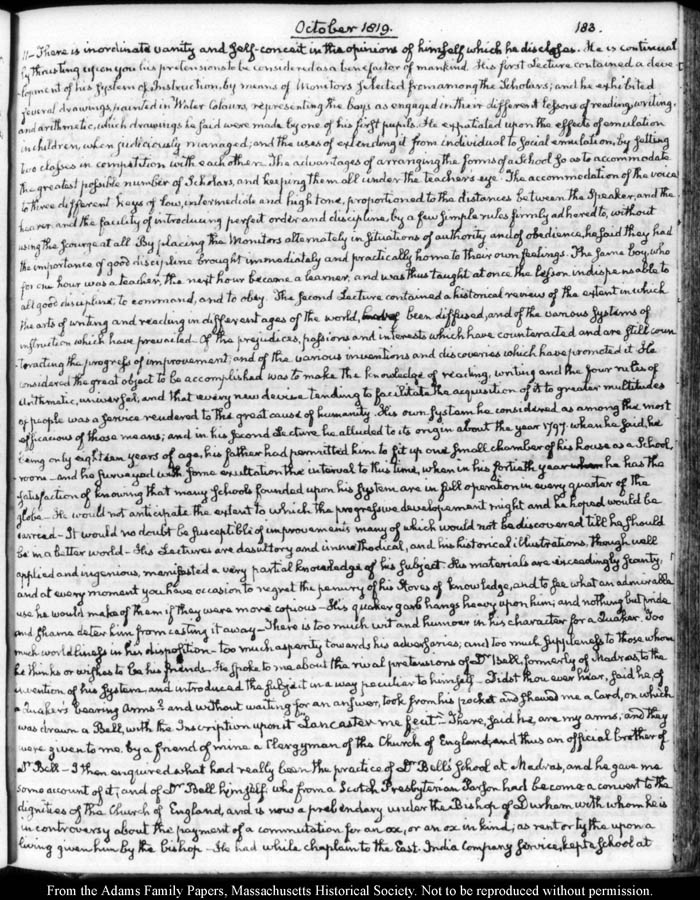 October 1819. 183.
11— There is inordinate vanity and self-conceit in the opinions of himself which he discloses. He is continual
ly thrusting upon you his pretensions to be considered as a benefactor of mankind. His first Lecture contained a deve-
lopment of his System of Instruction, by means of Monitors selected from among the Scholars; and he exhibited
several drawings, painted in Water Colours, representing the boys as engaged in their different lessons of reading, writing,
and arithmetic, which drawings he said were made by one of his first pupils. He expatiated upon the effects of emulation
in children, when judiciously managed; and the uses of extending it from individual to social emulation, by setting
two classes in competition with each other. The advantages of arranging the forms of a School so as to accommodate
the greatest possible number of Scholars, and keeping them all under the teacher's eye. The accommodation of the voice
to three different keys of low, intermediate and high tone, proportioned to the distances between the Speaker, and the
hearer and the facility of introducing perfect order and discipline, by a few simple rules firmly adhered to, without
using the scourge at all. By placing the Monitors alternately in situations of authority and of obedience, he said they had
the importance of good discipline brought immediately and practically home to their own feelings. The same boy, who
for one hour was a teacher, the next hour became a learner, and was thus taught at once the lesson indispensable to
all good discipline, to command, and to obey. The second Lecture contained a historical review of the extent in which
the arts of writing and reading in different ages of the world, been diffused, and of the various Systems of
instruction which have prevailed. Of the prejudices, passions and interests which have counteracted and are still coun-
teracting the progress of improvement, and of the various inventions and discoveries which have promoted it. He
considered the great object to be accomplished was to make the knowledge of reading, writing and the four rules of
Arithmetic, universal, and that every new device tending to facilitate the acquisition of it to greater multitudes
of people was a service rendered to the great cause of humanity. His own System he considered as among the most
efficacious of those means; and in his second Lecture he alluded to its origin about the year 1797. when he said, he
being only eighteen years of age, his father had permitted him to fit up one small chamber of his house as a School,
room— and he surveyed with some exultation the interval to this time, when in his fortieth year he has the
satisfaction of knowing that many Schools founded upon his System are in full operation in every quarter of the
globe— He would not anticipate the extent to which the progressive developement might and he hoped would be
carried— It would no doubt be susceptible of improvements many of which would not be discovered till he should
be in a better world— His Lectures are desultory and immethodical, and his historical illustrations, though well
applied and ingenious, manifested a very partial knowledge of his subject. His materials are exceedingly scanty,
and at every moment you have occasion to regret the penury of his stores of knowledge, and to see what an admirable
use he would make of them if they were more copious— His quaker garb hangs heavy upon him; and nothing but pride
and shame deter him from casting it away— There is too much wit and humour in his character for a Quaker. Too
much worldliness in his disposition— too much asperity towards his adversaries, and too much suppleness to those whom
he thinks or wishes to be his friends. He spoke to me about the rival pretensions of Dr. Bell, formerly of Madras, to the
invention of his System, and introduced the subject in a way peculiar to himself— Didst thou ever hear, said he, of
a Quaker's bearing Arms? and without waiting for an answer, took from his pocket and shewed me a Card, on which
was drawn a Bell, with the Inscription upon it Lancaster me fecit— There, said he, are my arms; and they
were given to me, by a friend of mine a Clergyman of the Church of England, and thus an official brother of
Dr. Bell— I then enquired what had really been the practice of Dr. Bell's School at Madras, and he gave me
some account of it; and of Dr. Bell himself, who from a Scotch Presbyterian Parson had become a convert to the
dignities of the Church of England, and is now a prebendary under the Bishop of Durham with whom he is
in controversy about the payment of a commutation for an ox, or an ox in kind, as rent or tythe upon a
living given him by the bishop— He had while chaplain to the East India Company service, kept a School at
From the Adams Family Papers, Massachusetts Historical Society. Not to be reproduced without permission.